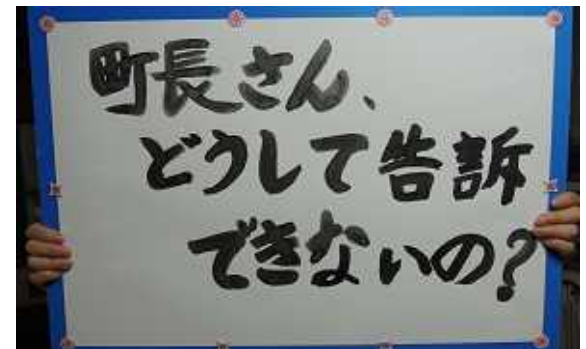 町長さん、
どうして告訴
できないの?